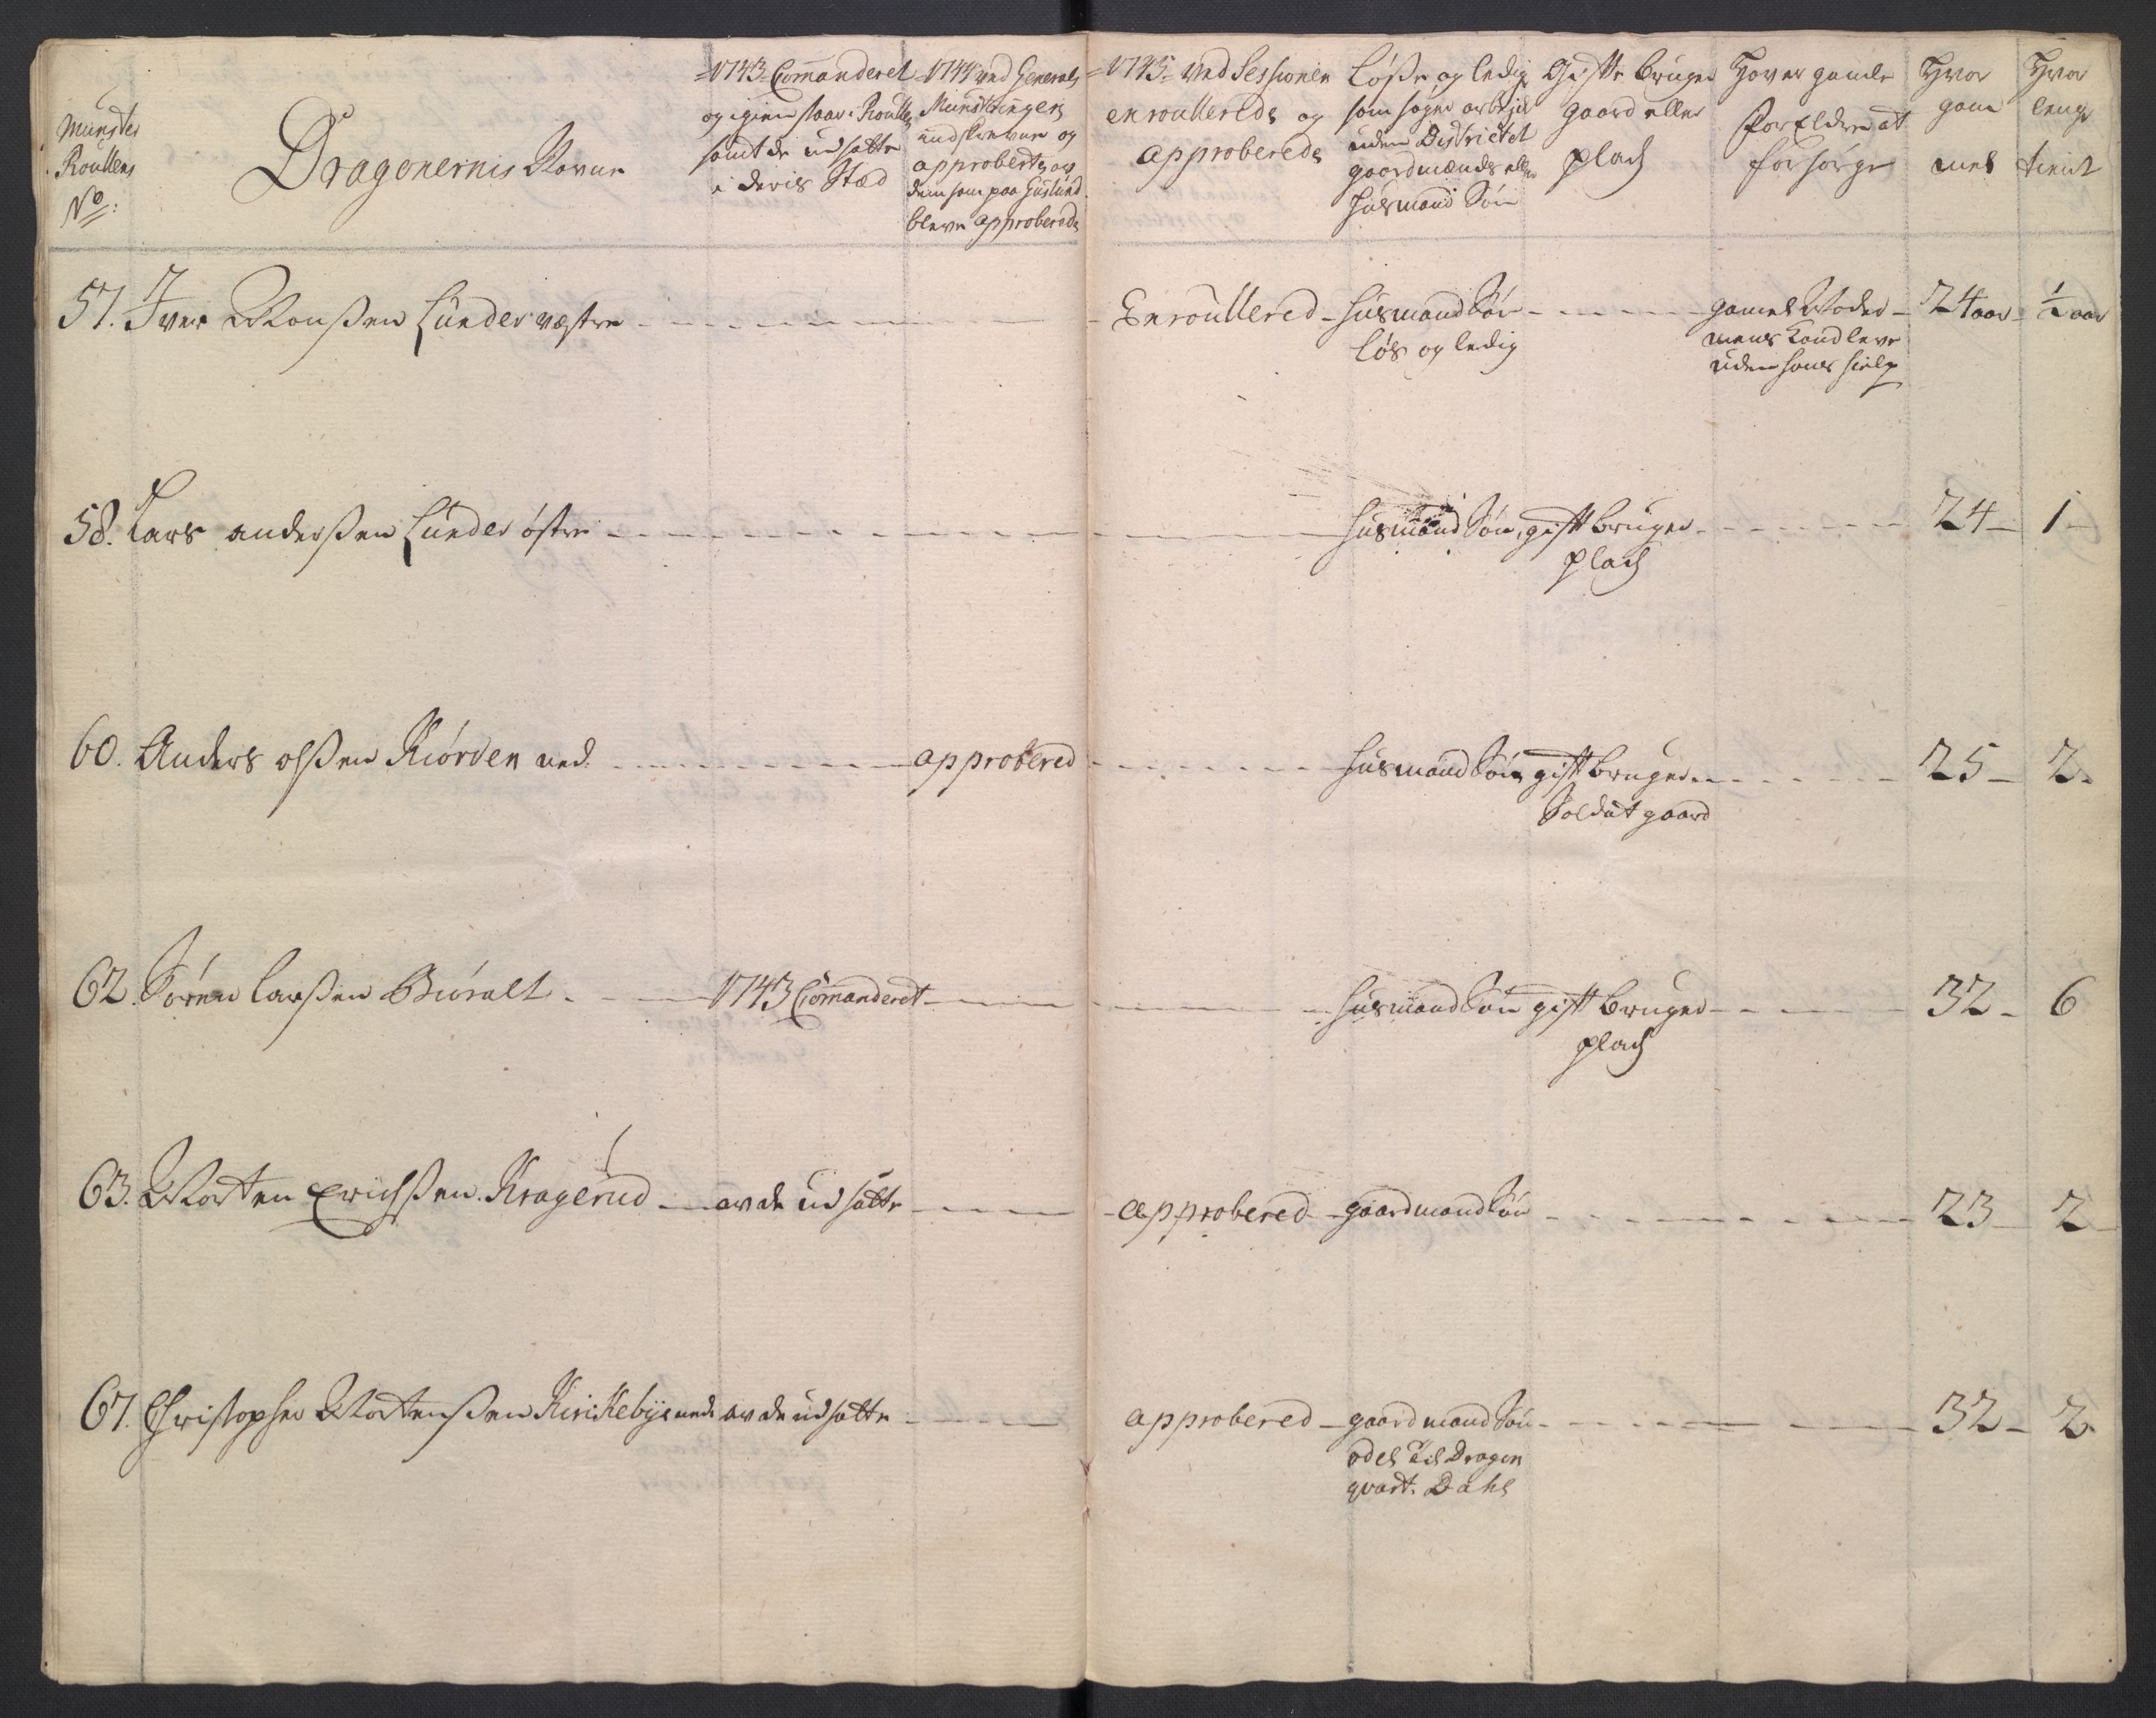 Munster
Roullens
No:
Dragonernis Navne
1743 Commanderet
og igien staar i Roullen
samt de udsatte
i deris Stæd
1744 ved General
Mynstringen
udskrevne og
approberte, og
dem som paa Huslund
bleve approberede
1745 ved Sessionen
enroullerede og
approberede
Løsse og ledig
som søger arbejde
uden Districtet
gaardmænds eller
Husmænd Søn
Gifte bruger
gaard eller
plads
Haver gamle
Forældre at
forsørge
Hvor
gam
mel
Hvor
lenge
tient
57. Iver Monsen Lunder væstre
Enroullered
Husmand Søn
løs og ledig
gamel Moder
mens kand leve
uden hans hielp
24 aar
½ aar
58. Lars andersen Lunder østre
Husmand Søn, gift bruger
plads
24
1
60. Anders olsen Kiørven ned.
approbered
Husmand Søn gift bruger
Soldat gaard
25
2
62. Søren larsen
1743 Commanderet
Husmand Søn gift bruger
plads
32
6
63. Morten Erichsen Kragerud
av de udsatte
approbered
gaardmand Søn
23
2
67. Christopher Mortensen Kirikebye ned.
av de udsatte
approbered
gaardmand Søn
odel til Dragon
qvart. Dahl
32
2